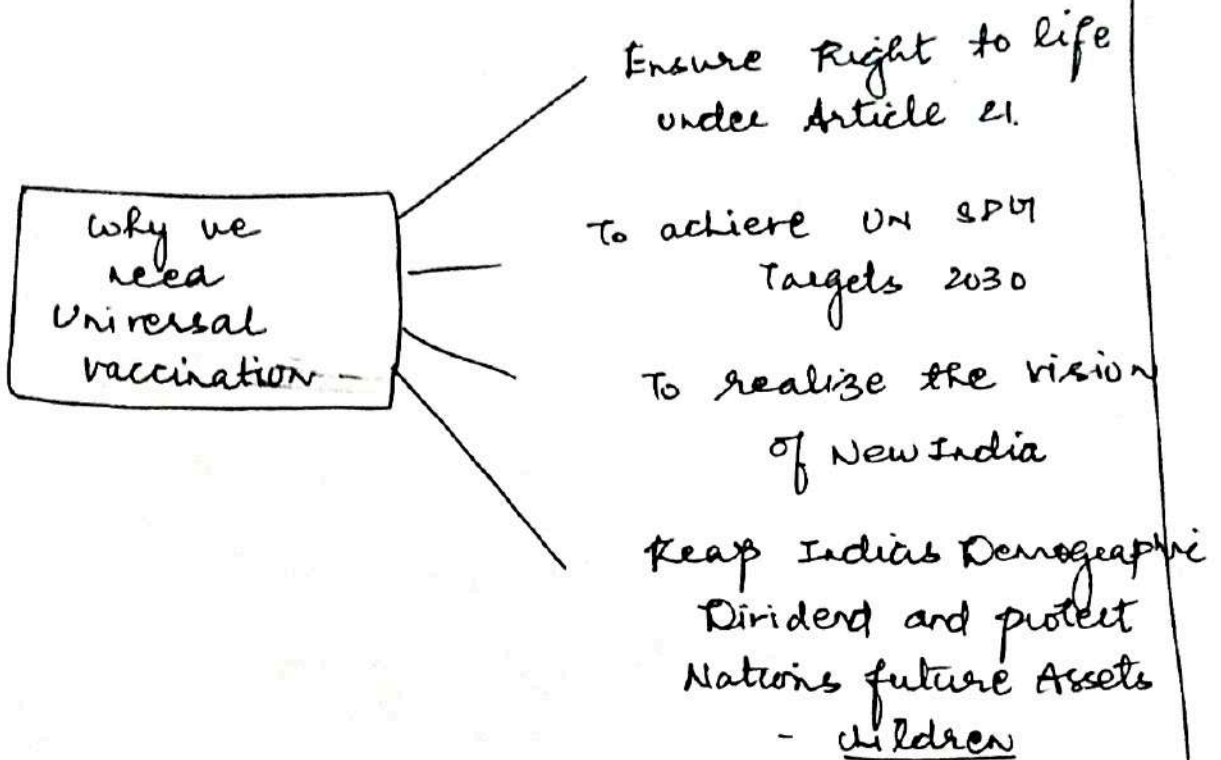 Why we
need
Universal
vaccination -
Ensure Right to life
under Article 21.
To achieve UN SDG
Targets 2030
To realize the vision
of New India
Reap Indias Demographic
Dividend and protect
Nations future Assets
- children